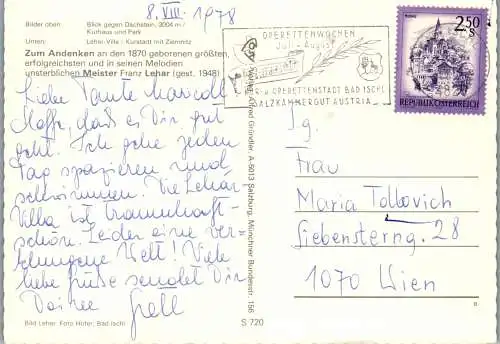 8. VIII. 1978
Bilder oben: Blick gegen Dachstein, 3004 m /
Kurhaus und Park
Unten: Lehár-Villa / Kurstadt mit Ziemnitz
Zum Andenken an den 1870 geborenen größten,
erfolgreichsten und in seinen Melodien
unsterblichen Meister Franz Lehar (gest. 1948)
Liebe Tante
Hoffe, daß es Dir gut
geht. Ich gehe jeden
Tag spazieren und
schwimmen. Die Lehar-
Villa ist traumhaft-
schön. Leider eine ver-
schwungene Welt! Viele
liebe Grüße sendet Dir
Deine Gretl
Bild Lehar: Foto Hofer, Bad Ischl
S 720
Alfred Gründler, A-5013 Salzburg, Münchner Bundesstr. 156
OPERETTENWOCHEN
Juli - August
OPERETTENSTADT BAD ISCHL
SALZKAMMERGUT AUSTRIA
2.50 S
REPUBLIK ÖSTERREICH
Frau
Maria Tolkovich
Siebensterng. 28
1070 Wien